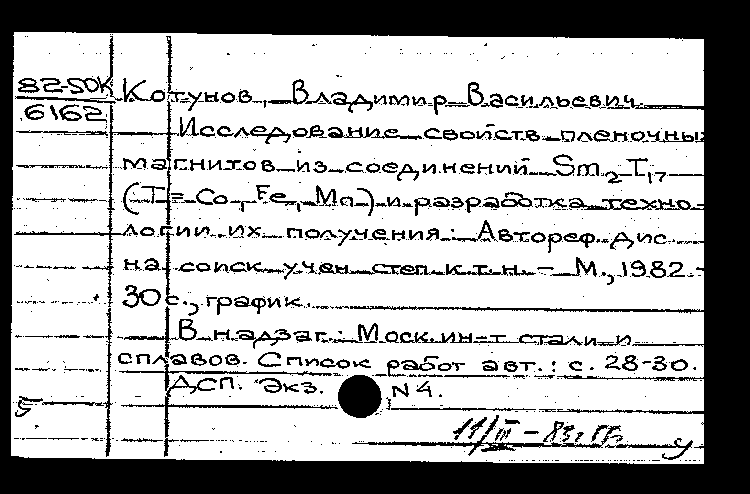 82-50К Котунов, Владимир Васильевич
6162
Исследование свойств пленочны
магнитов из соединений Sm2T17
(T = Co, Fe, Mn) и разработка техно-
логии их получения: Автореф. дис.
на соиск. учен. степ. к.т.н. – М., 1982.-
30 с., график.
В надзаг.: Моск. ин-т стали и
сплавов. Список работ авт.: с. 28-30.
ДСП. Экз. N 4.
5
11/III – 83г.